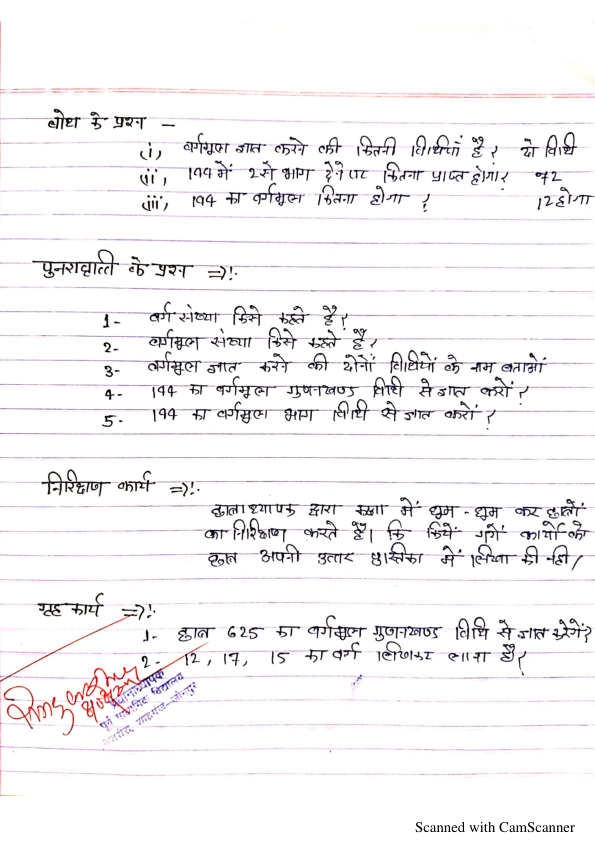 बोध के प्रश्न –
(i), वर्गमूल ज्ञात करने की कितनी विधियाँ है? दो विधि
(ii), 144 में 2 से भाग देने पर कितना प्राप्त होगा? 72
(iii), 144 का वर्गमूल कितना होगा ? 12 होगा
पुनरावृत्ति के प्रश्न =>!-
1- वर्ग संख्या किसे कहते है?
2- वर्गमूल संख्या किसे कहते है?
3- वर्गमूल ज्ञात करने की दोनों विधियों के नाम बताओं
4- 144 का वर्गमूल गुणनखण्ड विधि से ज्ञात करों ?
5- 144 का वर्गमूल भाग विधि से ज्ञात करों ?
निरिक्षण कार्य =>!-
छात्राध्यापक द्वारा कक्षा में घुम-घुम कर छात्रों
का निरिक्षण करते है। कि किये गये कार्यो को
छात्र अपनी उत्तर पुस्तिका में लिखा की नही/
गृह कार्य =>!-
1- छात्र 625 का वर्गमूल गुणनखण्ड विधि से ज्ञात करेगें?
2- 12, 17, 15 का वर्ग लिखकर लाना है?
प्रधानाध्यापक
पूर्व माध्यमिक विद्यालय
Scanned with CamScanner